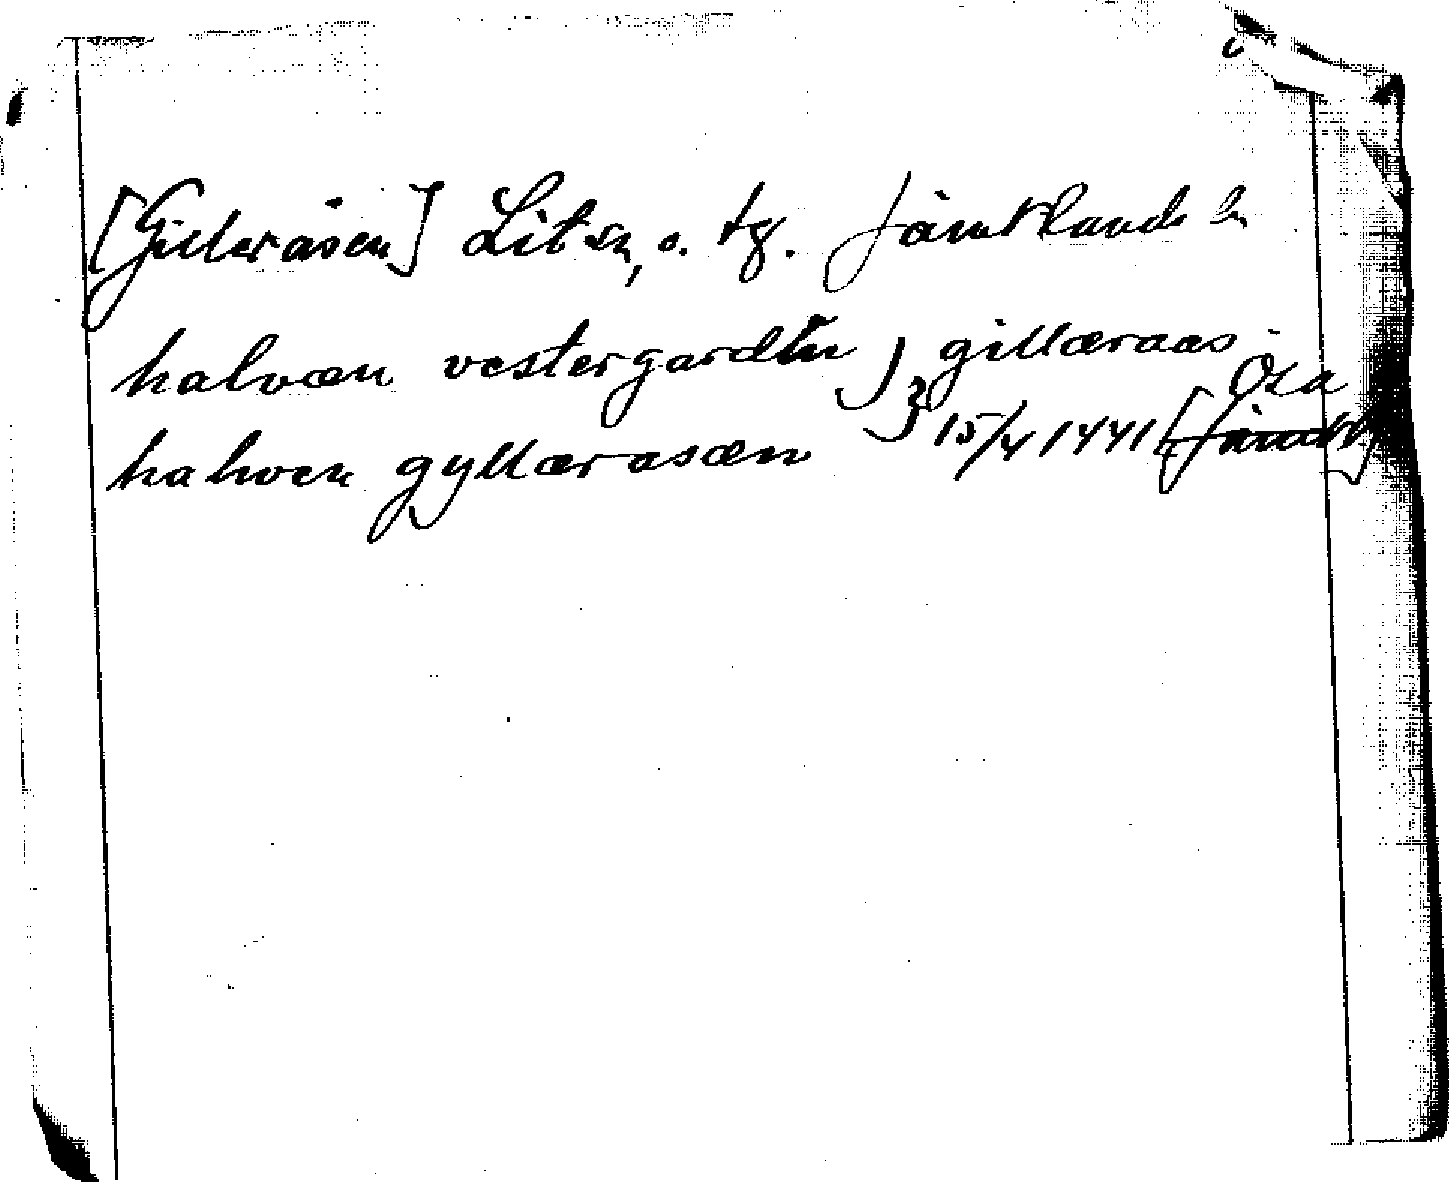 [Gilleråsen] Lits sn, o. tg. Jämtlands l.
halvæn vestergardhn j gillæraas
halven gyllærasæn } 15/4 1441 [Jämtl.] Öra